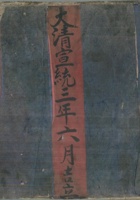 大清宣統三年六月吉立